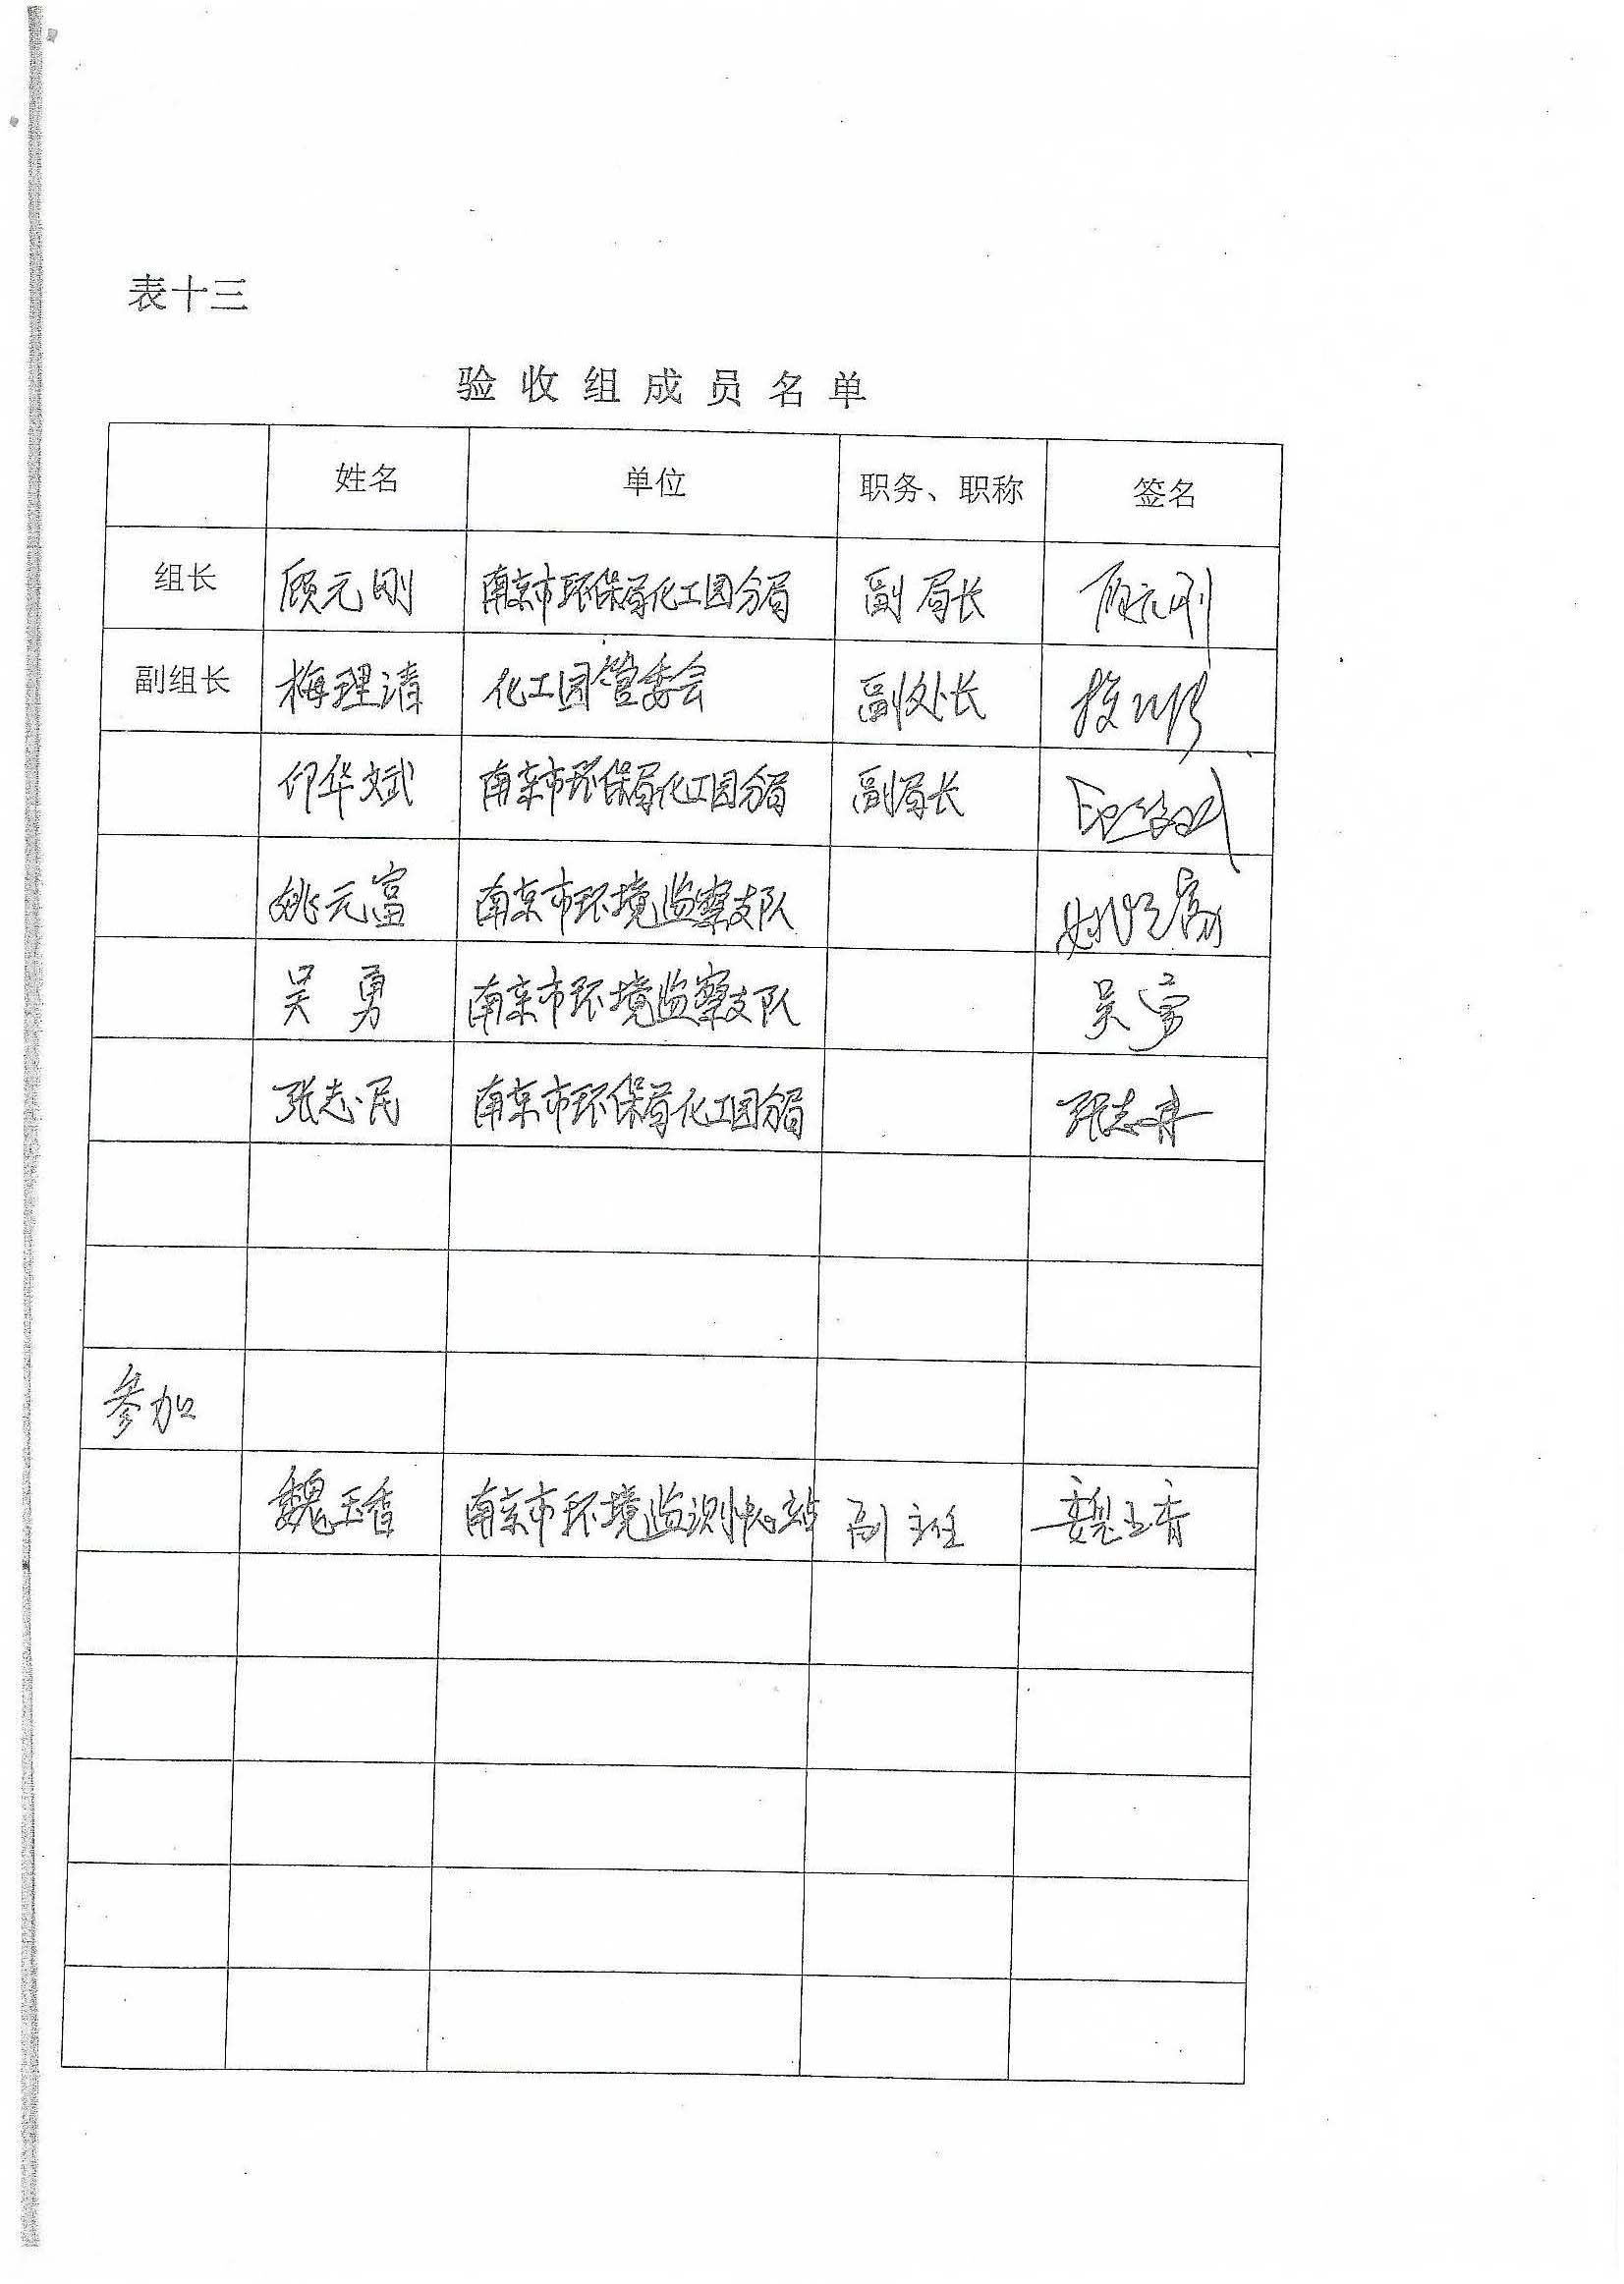 表十三
验收组成员名单
姓名 单位 职务、职称 签名
组长 顾元刚 南京市环保局化工园分局 副局长 顾元刚
副组长 梅理清 化工园管委会 副处长
印华斌 南京市环保局化工园分局 副局长 印华斌
姚元富 南京市环境监察支队 姚元富
吴勇 南京市环境监察支队 吴勇
张志民 南京市环保局化工园分局 张志
参加
魏玉香 南京市环境监测中心站 副主任 魏玉香